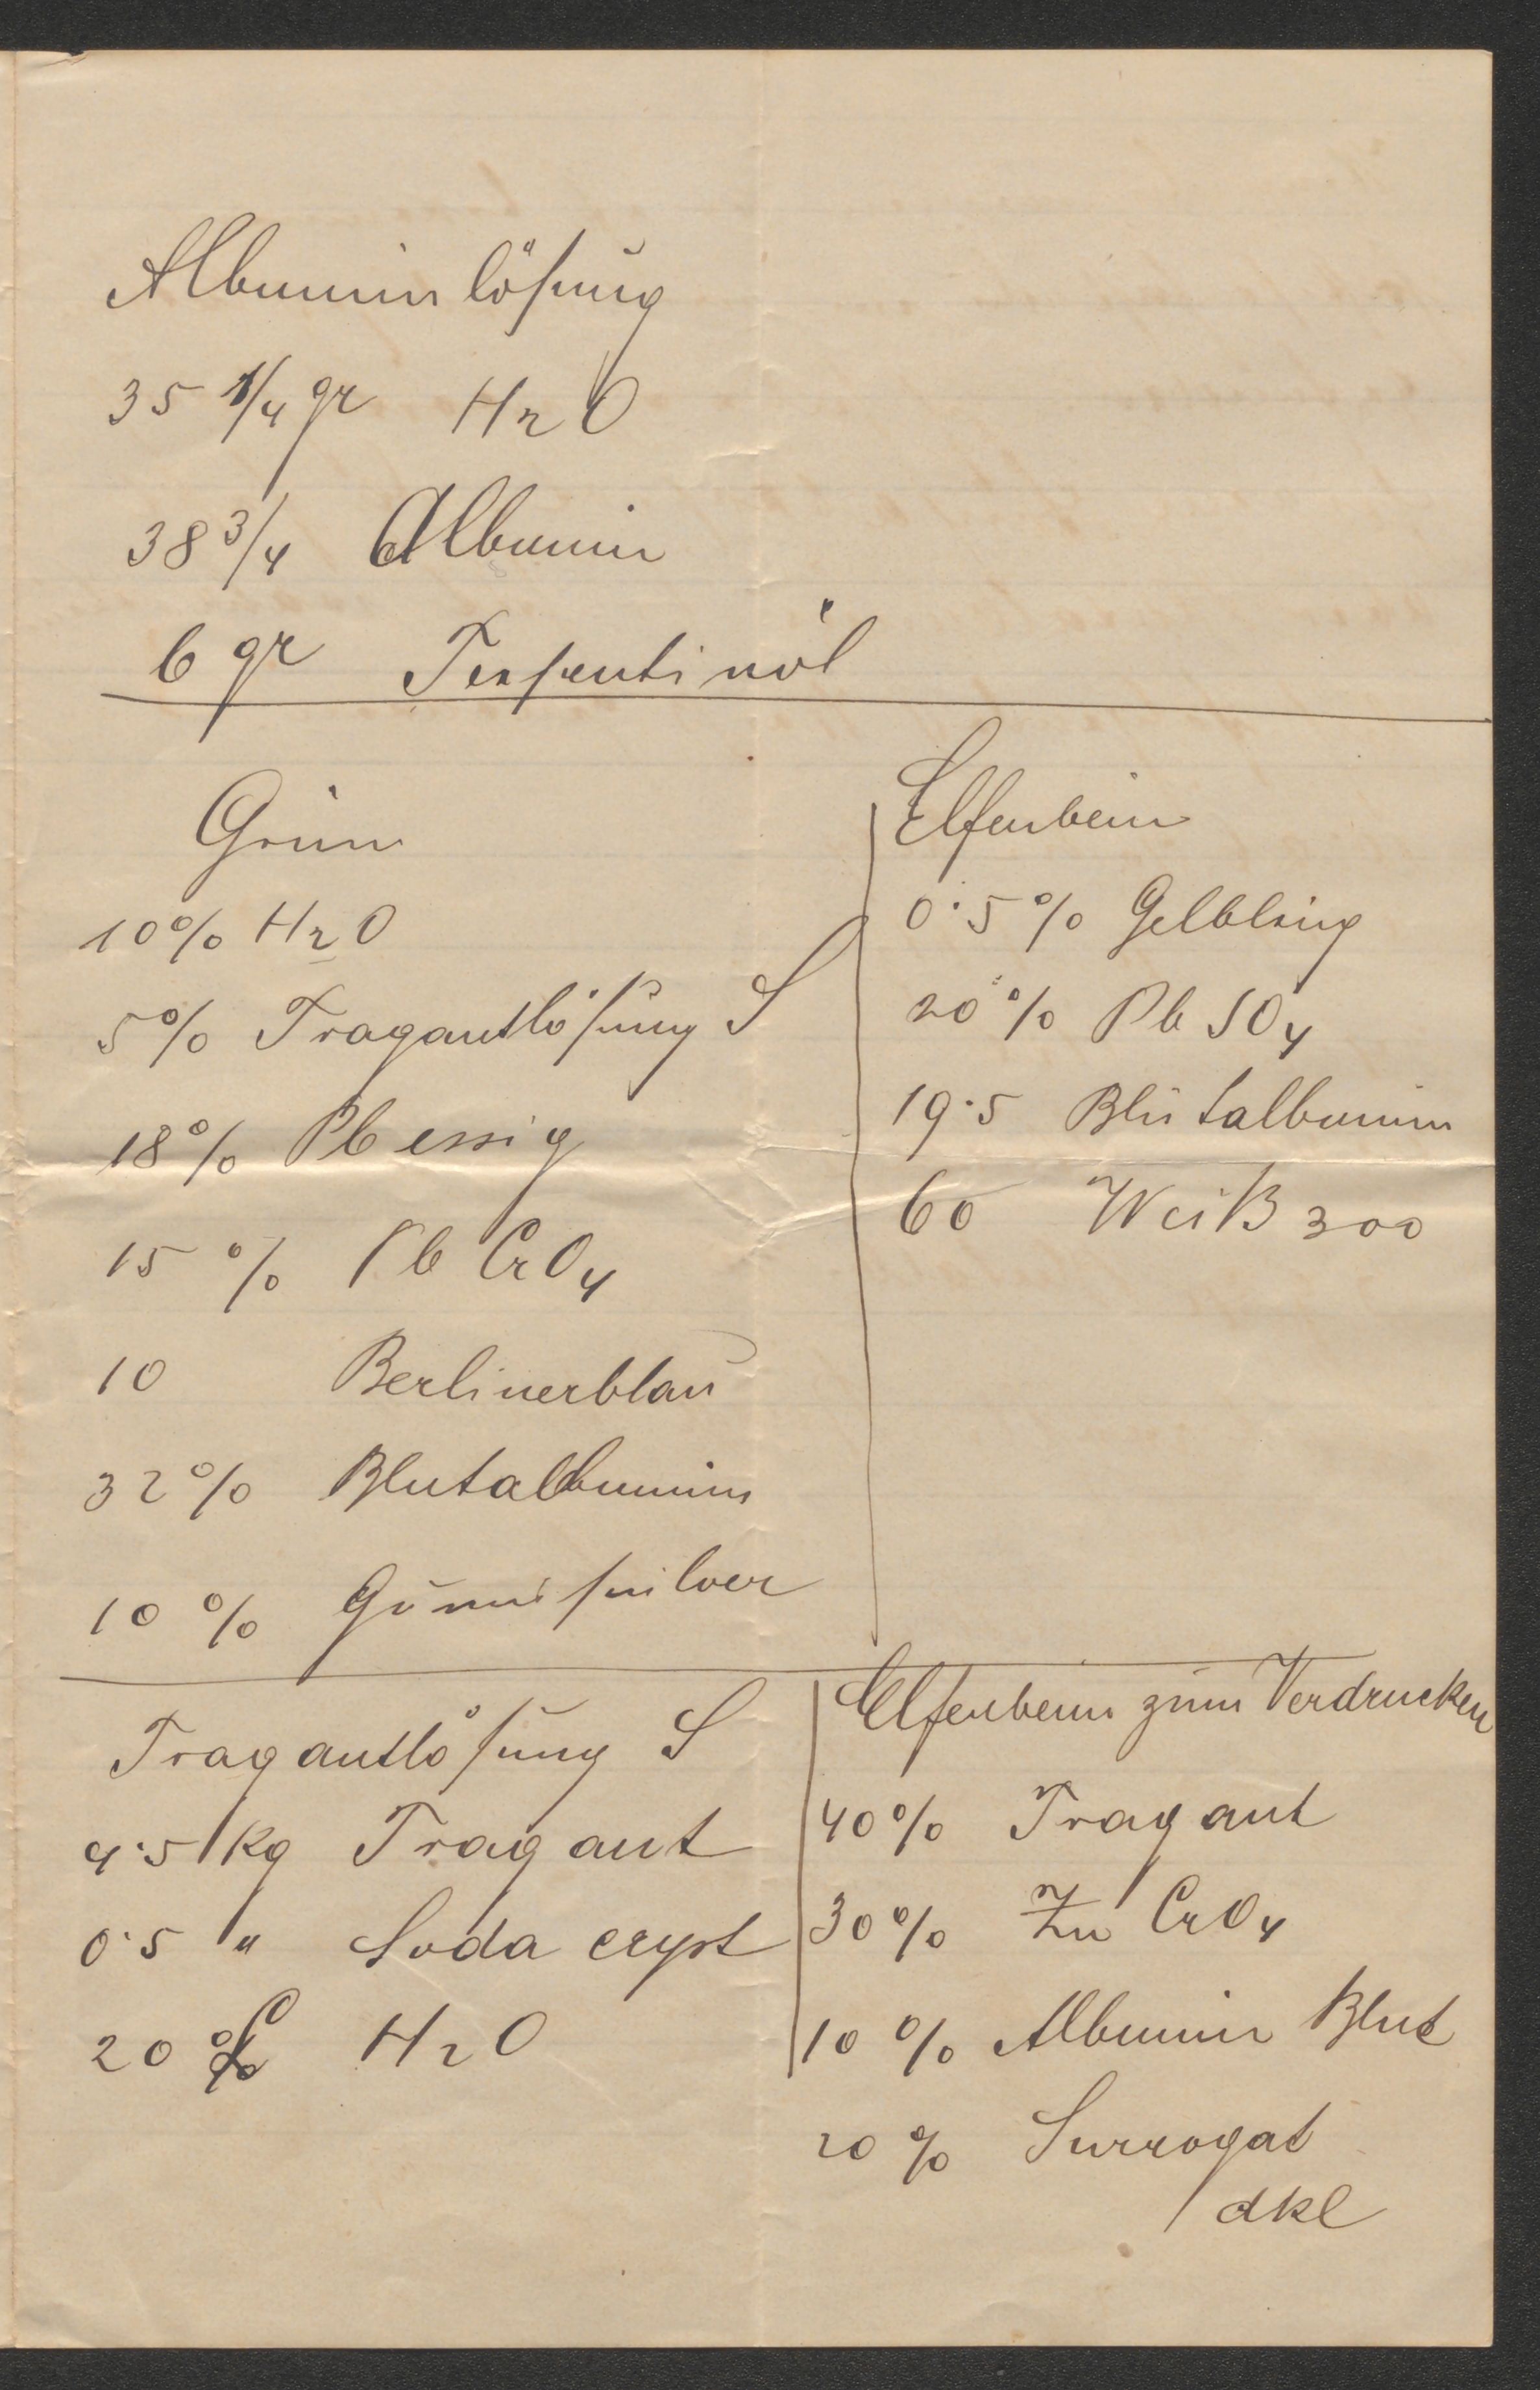 Albuminlösung
35 1/4 gr H2O
38 3/4 Albumin
6 gr Terpentinöl
Grün
10% H2O
5% Tragantlösung S
18% Pb essig
15 % Pb CrO4
10 Berlinerblau
32% Blutalbumin
10 % Gumipulver
Elfenbein
0·5 % Gelbling
20 % Pb SO4
19·5 Blutalbumin
60 Weiß 300
Tragantlösung S
4·5 kg Tragant
0·5 " Soda cryst
20 l H2O
Elfenbein zum Verdrucken
40% Tragant
30% Zn CrO4
10 % Albumin Blut
20 % Surrogat
dkl